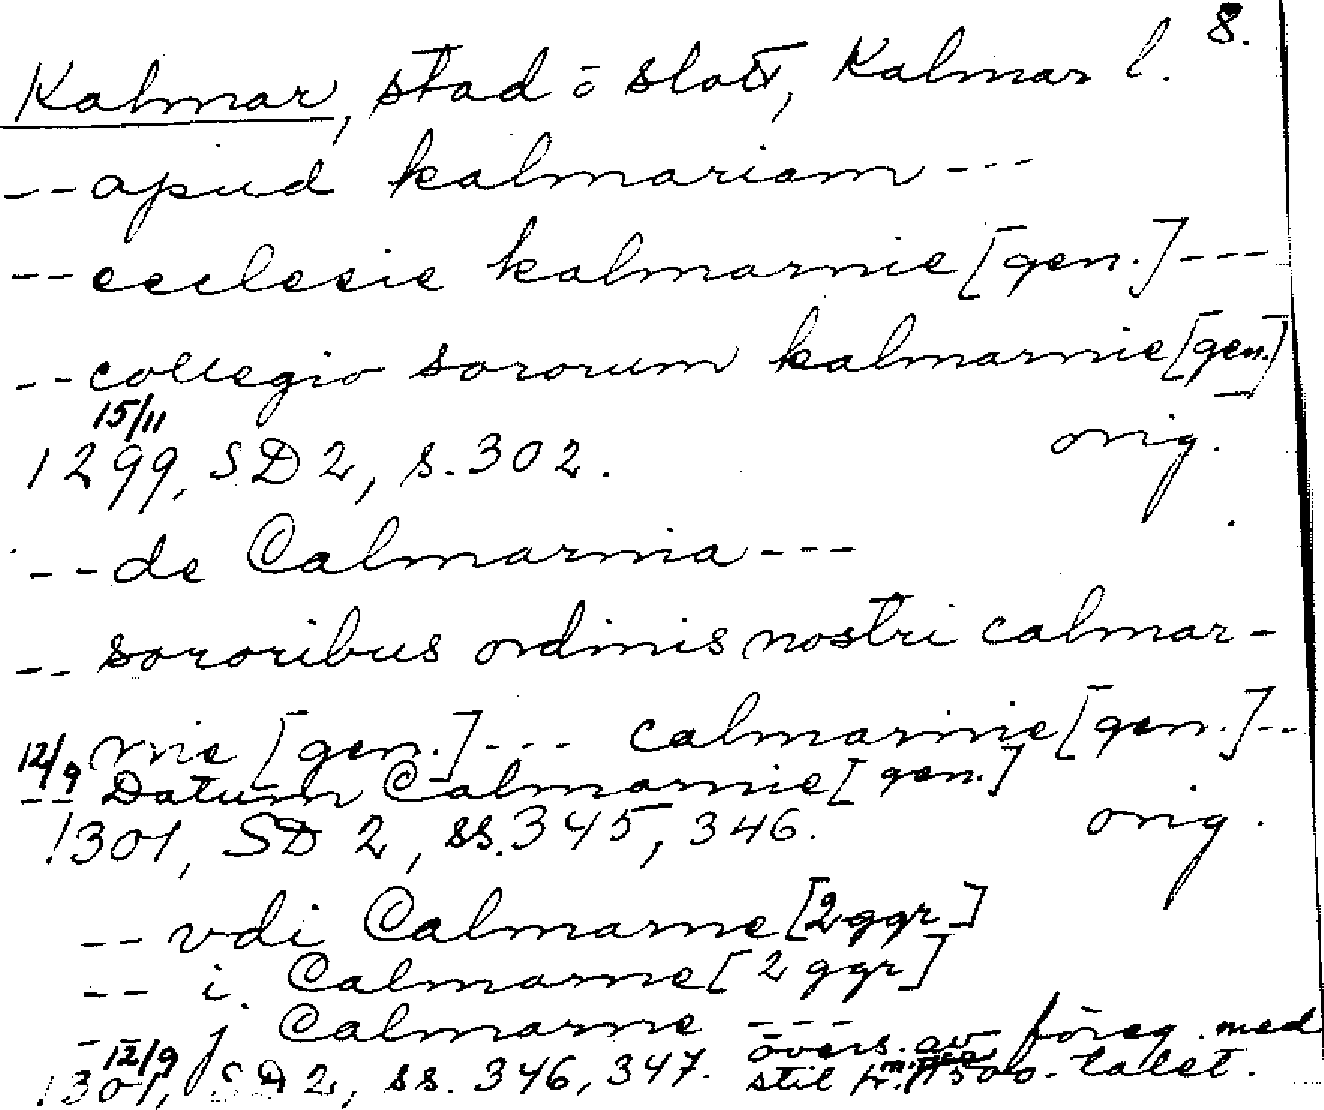 8.
Kalmar, stad o slott, Kalmar l.
-- apud kalmariam ---
-- ecclesie kalmarnie [gen.] ---
-- collegio sororum kalmarnie [gen.]
15/11
1299, SD 2, s. 302. orig.
-- de Calmarnia ---
-- sororibus ordinis nostri calmar-
nie [gen.] --- calmarnie [gen.] --
12/9
-- Datum Calmarnie [gen.]
1301, SD 2, ss. 345, 346. orig.
-- vdi Calmarne [2 ggr]
-- i Calmarne [2 ggr]
-- j Calmarne ---
12/9 övers. av föreg. med
1301, SD 2, ss. 346, 347. stil fr. 1500-talet.